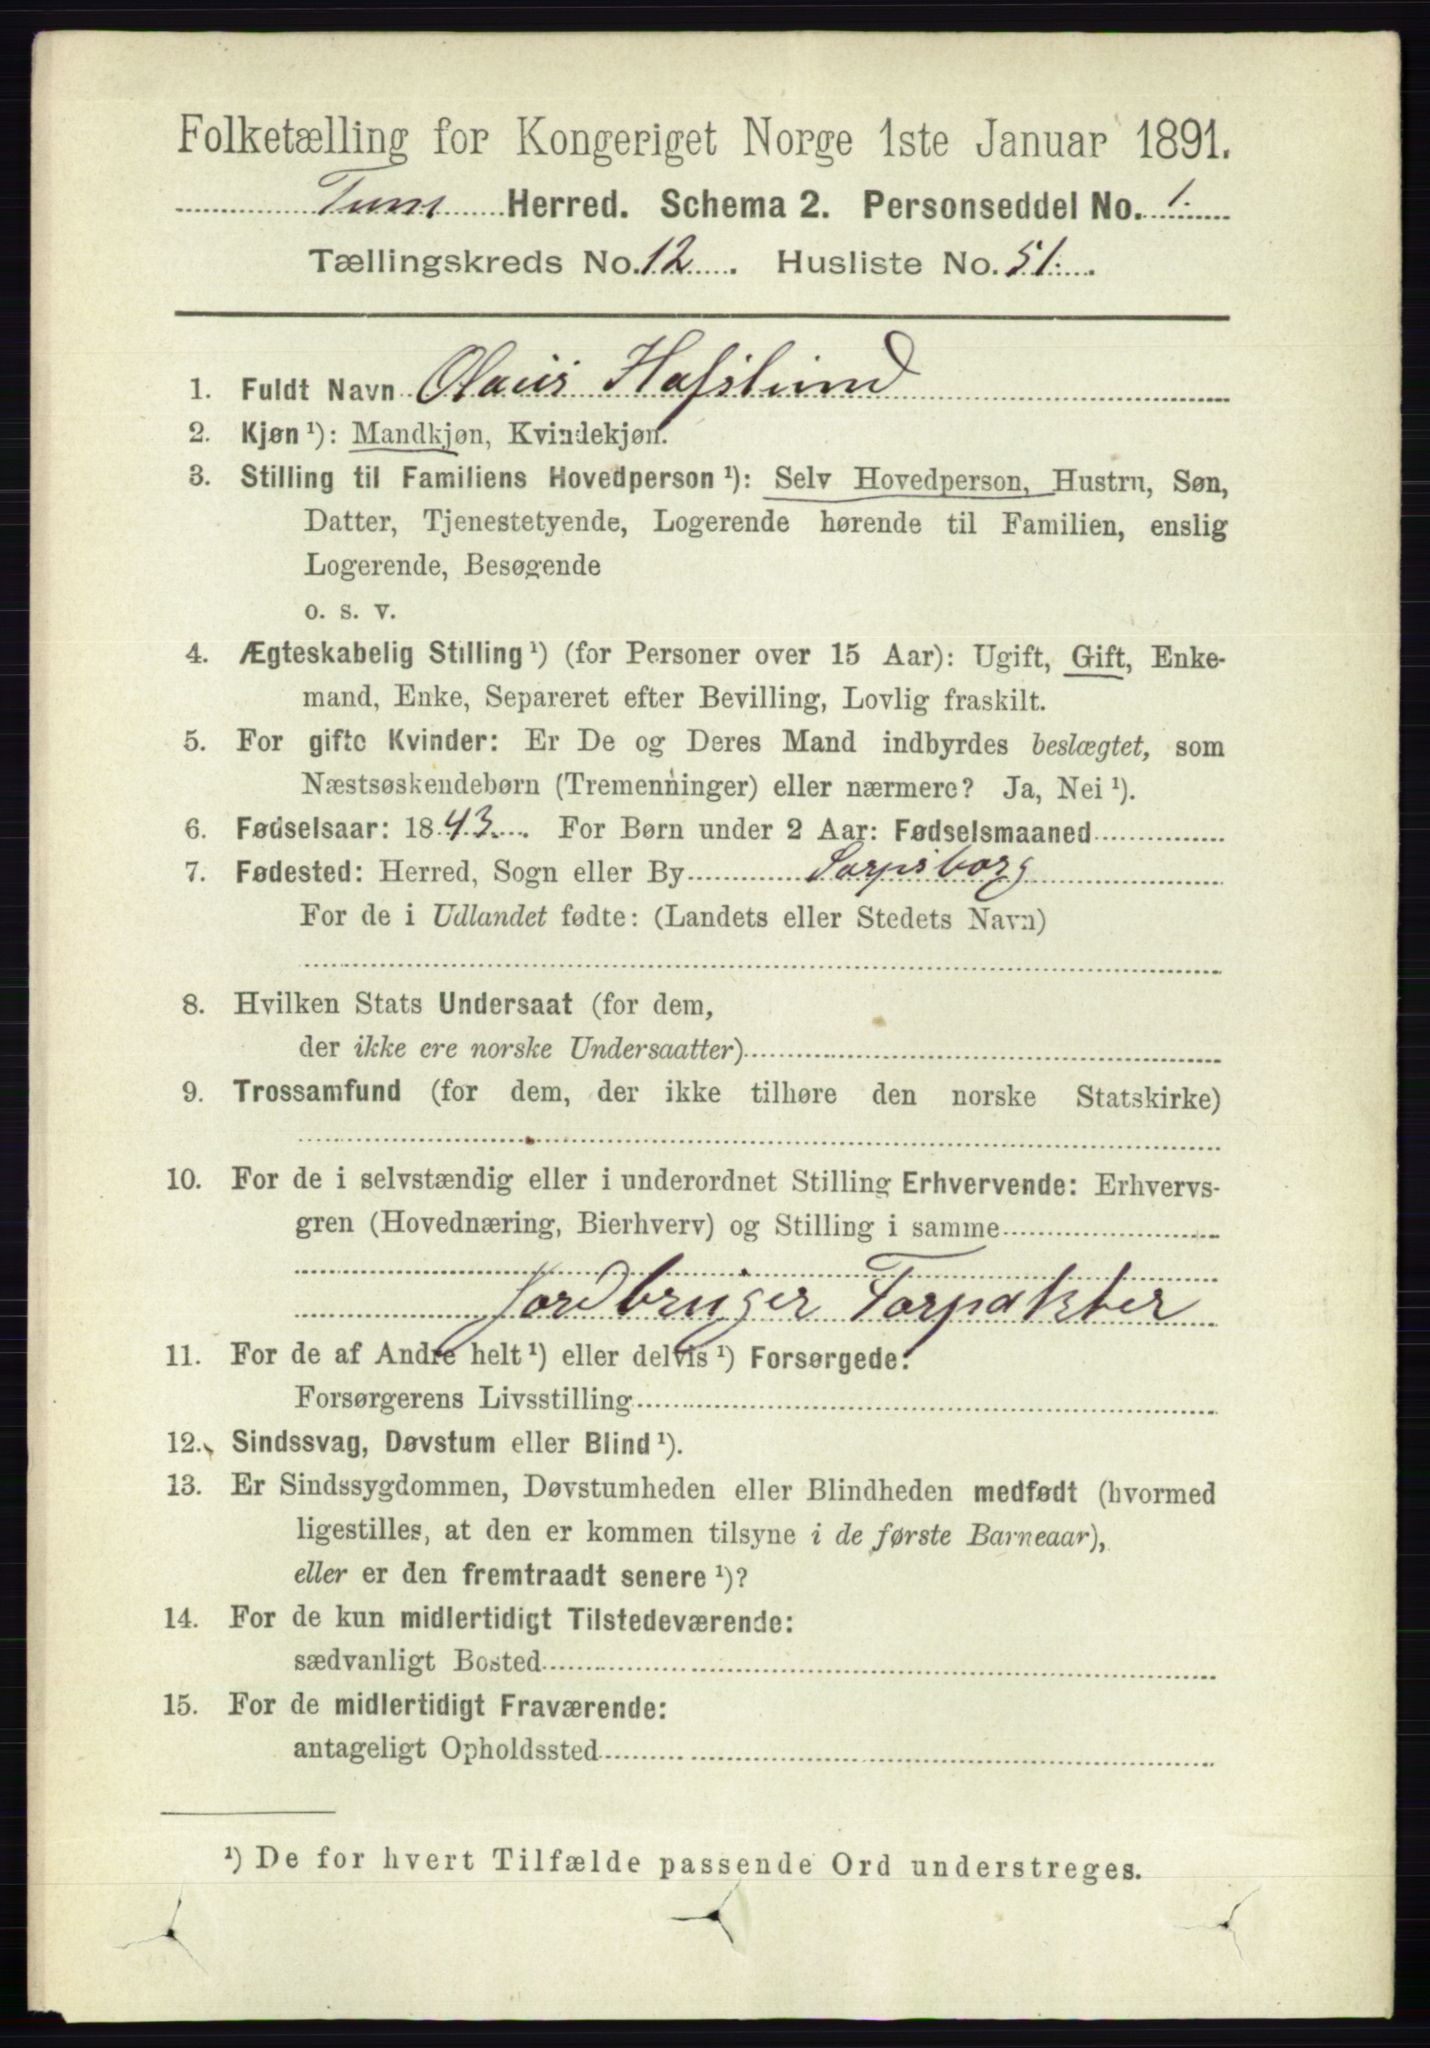 Folketælling for Kongeriget Norge 1ste Januar 1891.
Tune Herred. Schema 2. Personseddel No. 1.
Tællingskreds No. 12. Husliste No. 51.
1. Fuldt Navn Olaus Hafslund
2. Kjøn ¹): Mandkjøn, Kvindekjøn.
3. Stilling til Familiens Hovedperson ¹): Selv Hovedperson, Hustru, Søn,
Datter, Tjenestetyende, Logerende hørende til Familien, enslig
Logerende, Besøgende
o. s. v.
4. Ægteskabelig Stilling ¹) (for Personer over 15 Aar): Ugift, Gift, Enke-
mand, Enke, Separeret efter Bevilling, Lovlig fraskilt.
5. For gifte Kvinder: Er De og Deres Mand indbyrdes beslægtet, som
Næstsøskendebørn (Tremenninger) eller nærmere? Ja, Nei ¹).
6. Fødselsaar: 1843. For Børn under 2 Aar: Fødselsmaaned
7. Fødested: Herred, Sogn eller By Sarpsborg
For de i Udlandet fødte: (Landets eller Stedets Navn)
8. Hvilken Stats Undersaat (for dem,
der ikke ere norske Undersaatter)
9. Trossamfund (for dem, der ikke tilhøre den norske Statskirke)
10. For de i selvstændig eller i underordnet Stilling Erhvervende: Erhvervs-
gren (Hovednæring, Bierhverv) og Stilling i samme
Jordbruger Forpakter
11. For de af Andre helt ¹) eller delvis ¹) Forsørgede:
Forsørgerens Livsstilling
12. Sindssvag, Døvstum eller Blind ¹).
13. Er Sindssygdommen, Døvstumheden eller Blindheden medfødt (hvormed
ligestilles, at den er kommen tilsyne i de første Barneaar),
eller er den fremtraadt senere ¹)?
14. For de kun midlertidigt Tilstedeværende:
sædvanligt Bosted
15. For de midlertidigt Fraværende:
antageligt Opholdssted
¹) De for hvert Tilfælde passende Ord understreges.